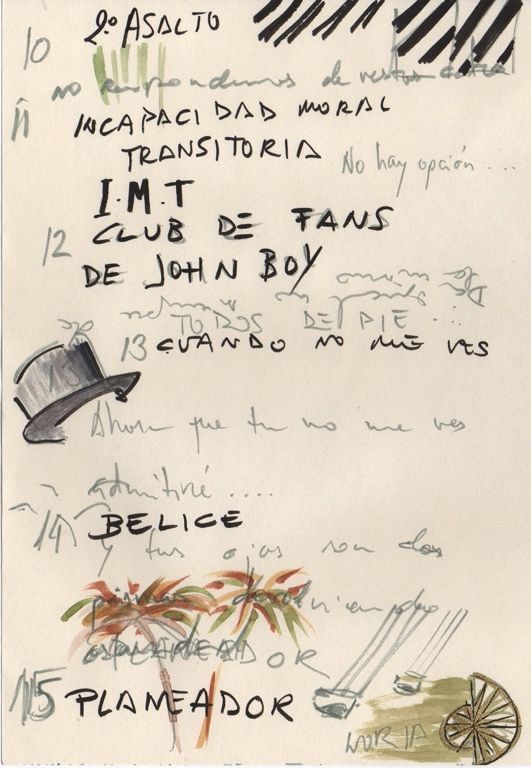 10 2.º ASALTO
no respondemos de
11 INCAPACIDAD MORAL
TRANSITORIA
No hay opción...
I.M.T
12 CLUB DE FANS
DE JOHN BOY
TODOS DE PIE...
13 CUANDO NO ME VES
13
Ahora que tu no me ves
admitiré....
14 BELICE
y tus ojos son dos
PLANEADOR
15 PLANEADOR
NORIA